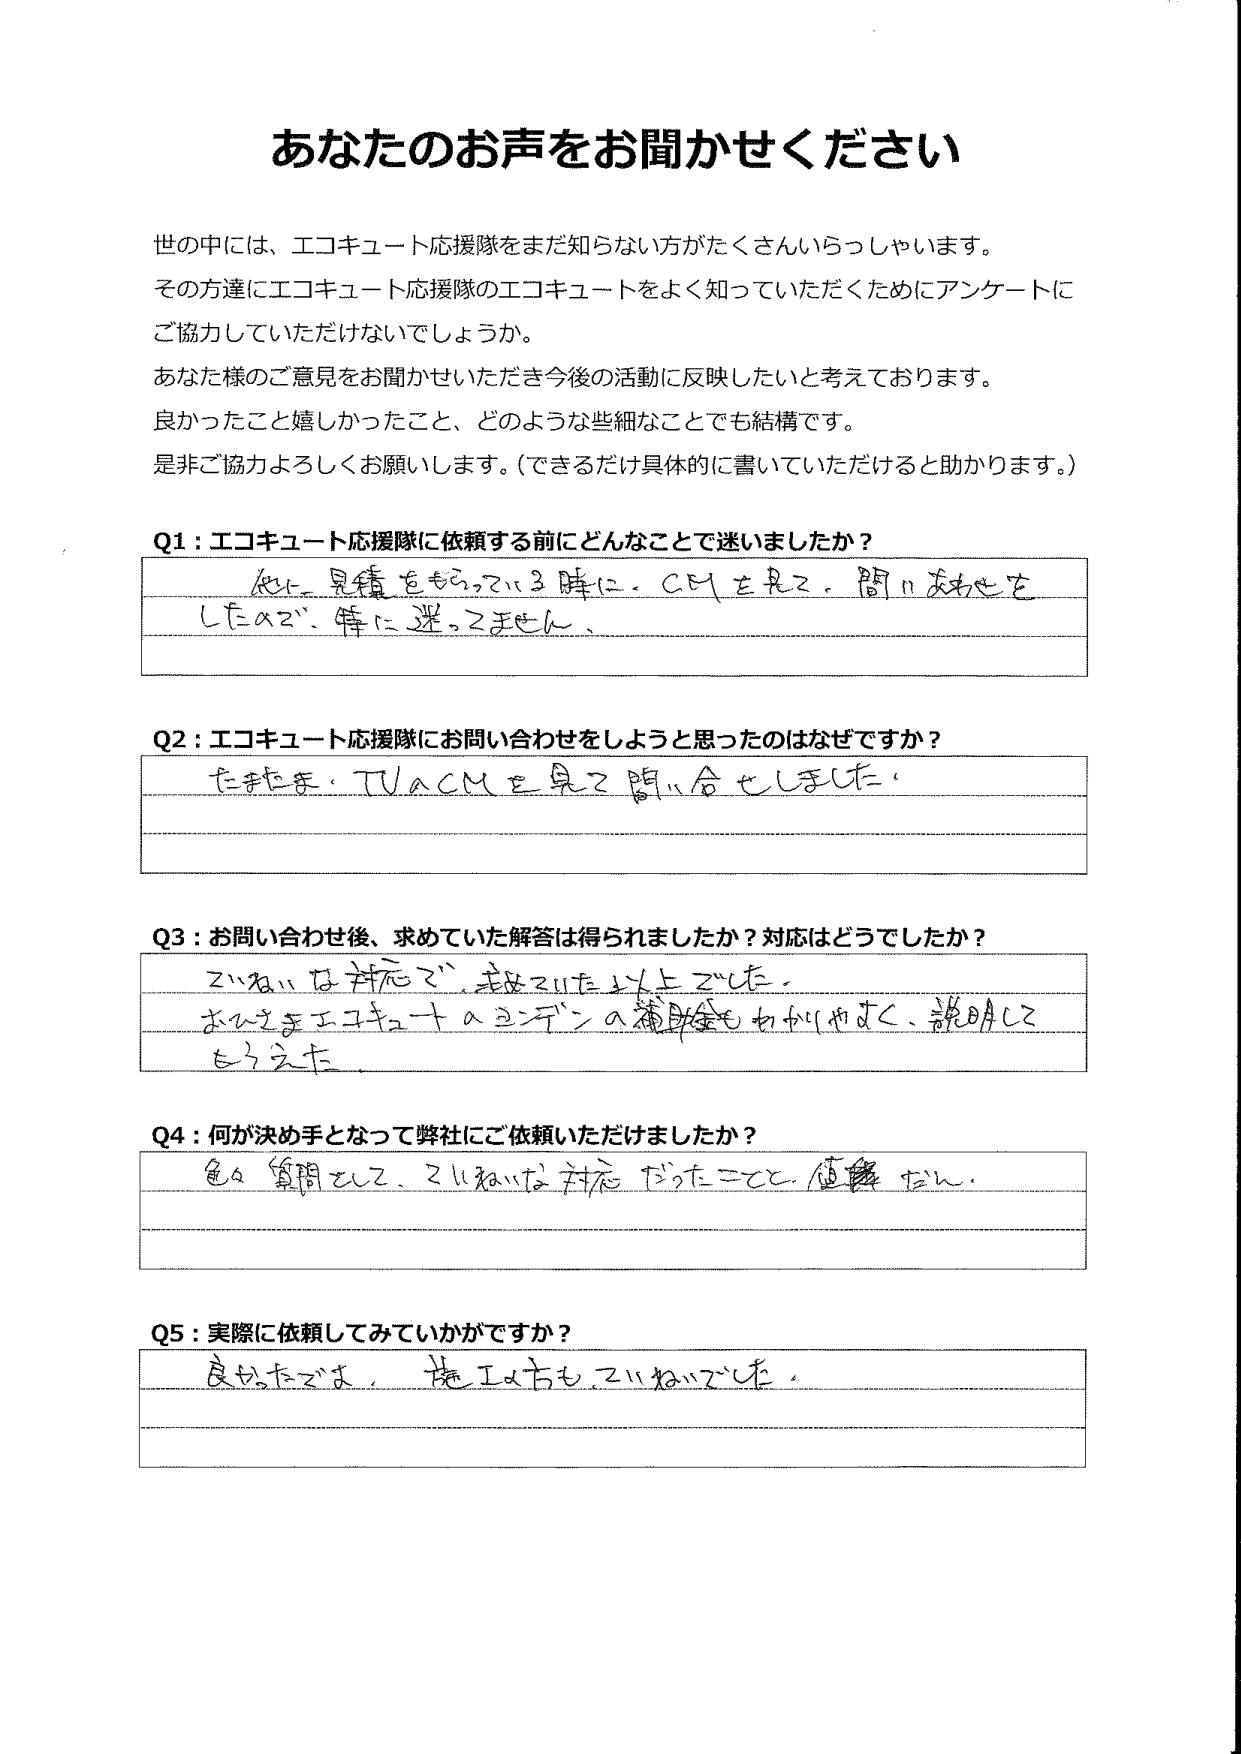 あなたのお声をお聞かせください
世の中には、エコキュート応援隊をまだ知らない方がたくさんいらっしゃいます。
その方達にエコキュート応援隊のエコキュートをよく知っていただくためにアンケートに
ご協力していただけないでしょうか。
あなた様のご意見をお聞かせいただき今後の活動に反映したいと考えております。
良かったこと嬉しかったこと、どのような些細なことでも結構です。
是非ご協力よろしくお願いします。(できるだけ具体的に書いていただけると助かります。)
Q1：エコキュート応援隊に依頼する前にどんなことで迷いましたか？
他に見積をもらっている時に、CMを見て、問いあわせを
したので、特に迷ってません、
Q2：エコキュート応援隊にお問い合わせをしようと思ったのはなぜですか？
たまたま、TVのCMを見て問い合せしました、
Q3：お問い合わせ後、求めていた解答は得られましたか？対応はどうでしたか？
ていねいな対応で、求めていた以上でした、
おひさまエコキュートのヨンデンの補助金もわかりやすく、説明して
もらえた
Q4：何が決め手となって弊社にご依頼いただけましたか？
色々質問をして、ていねいな対応だったことと、値だん、
Q5：実際に依頼してみていかがですか？
良かったです、施工の方も、ていねいでした、